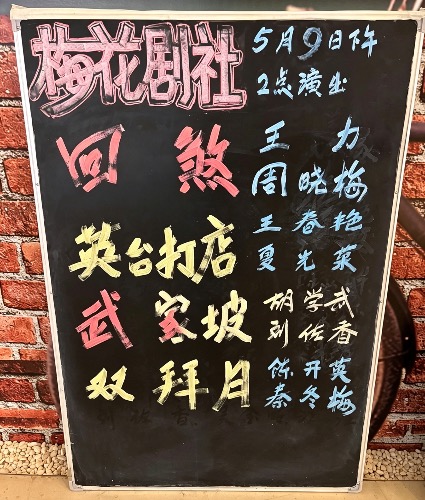 梅花剧社
5月9日下午
2点演出
回煞
王力
周晓梅
英台打店
王春艳
夏先菜
武家坡
胡学武
刘佐香
双拜月
陈开英
秦冬梅